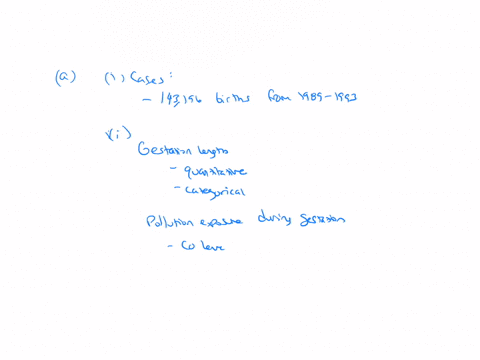 (a) (1) Cases:
- 143,196 births from 1989-1993
(i)
Gestation lengths
- quantitative
- categorical
Pollution exposure during gestation
- CO leve